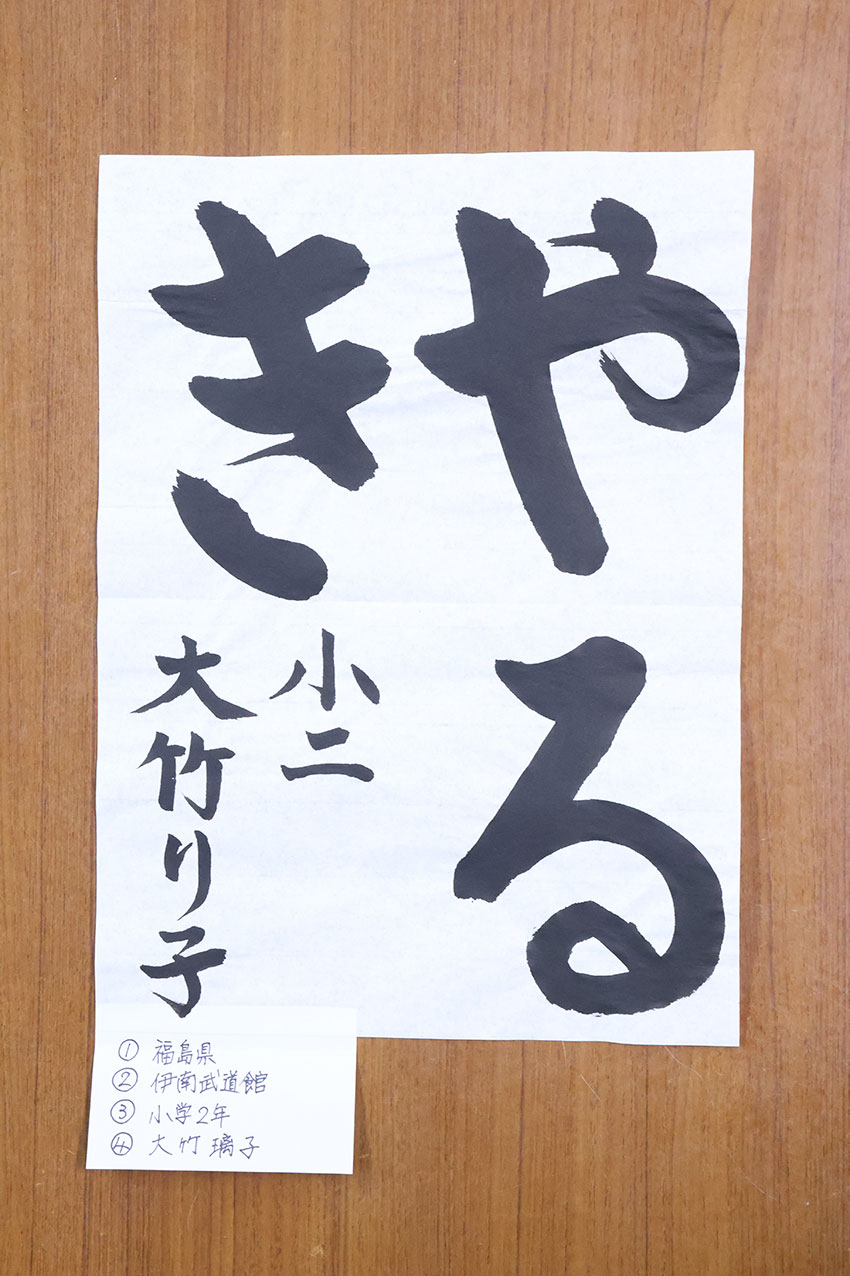 やる
き
小二
大竹り子
① 福島県
② 伊南武道館
③ 小学2年
④ 大竹 璃子